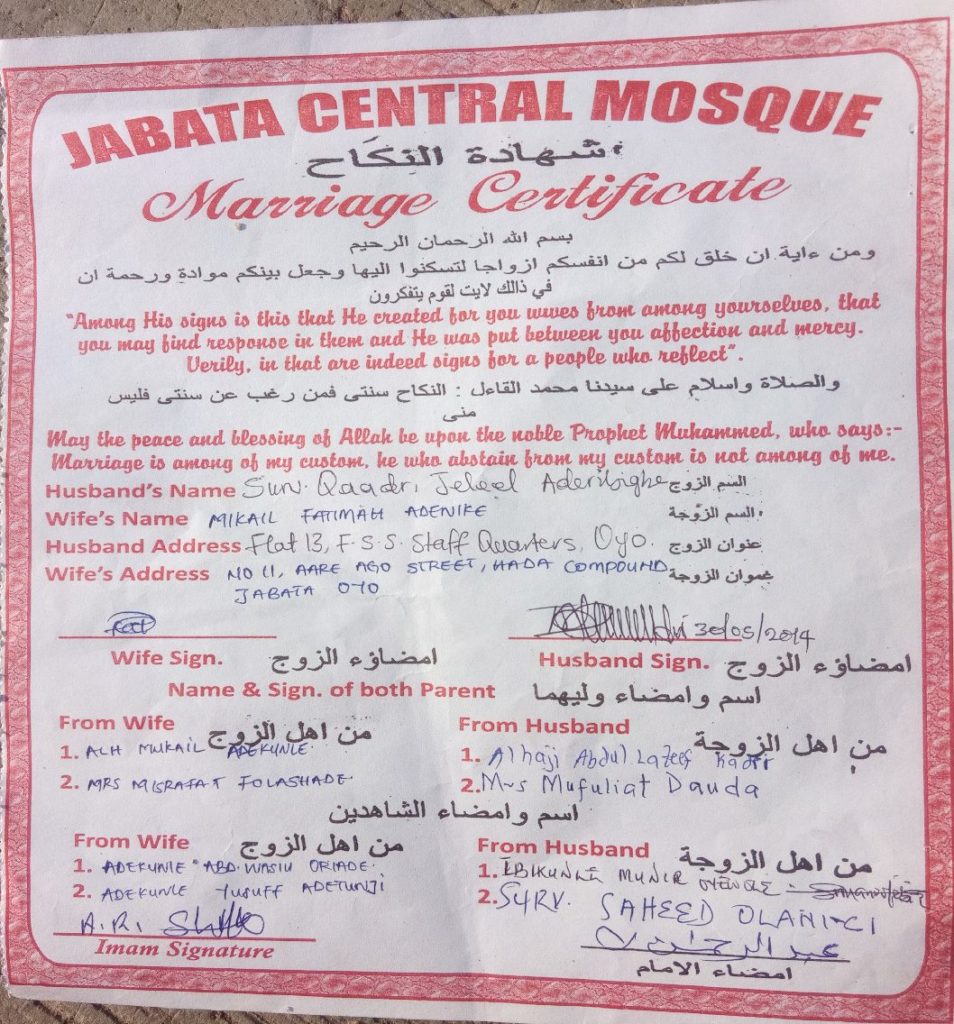 JABATA CENTRAL MOSQUE
شهادة النِكَاح
Marriage Certificate
بسم الله الرحمان الرحيم
ومن ءاية ان خلق لكم من انفسكم ازواجا لتسكنوا اليها وجعل بينكم موادة ورحمة ان
في ذالك لايت لقوم يتفكرون
"Among His signs is this that He created for you wives from among yourselves, that
you may find response in them and He was put between you affection and mercy.
Verily, in that are indeed signs for a people who reflect".
والصلاة واسلام على سيدنا محمد القاءل : النكاح سنتى فمن رغب عن سنتى فليس
منى
May the peace and blessing of Allah be upon the noble Prophet Muhammed, who says:-
Marriage is among of my custom, he who abstain from my custom is not among of me.
Husband's Name Surv. Qaadri, Jeleel Aderibigbe السم الزوج
Wife's Name MIKAIL FATIMAH ADENIKE السم الزوّجة
Husband Address Flat 13, F.S.S. Staff Quarters, Oyo. عنوان الزوج
Wife's Address NO 11, AARE AGO STREET, HADA COMPOUND الزوجة
JABATA OYO
30/05/2014
Wife Sign. امضاؤء الزوج Husband Sign. امضاؤء الزوج
Name & Sign. of both Parent اسم وامضاء وليهما
From Wife من اهل الزوج From Husband من اهل الزوجة
1. ALH MIKAIL ADEKUNLE. 1. Alhaji Abdul Lazeef Kadir
2. MRS MISRAFAT FOLASHADE 2. Mrs Mufuliat Dauda
اسم وامضاء الشاهدين
From Wife من اهل الزوج From Husband من اهل الزوجة
1. ADEKUNLE ABD. WASIU ORIADE. 1. IBIKUNLE MUNIR
2. ADEKUNLE YUSUFF ADETUNJI 2. SURV. SAHEED
A.R. عبد الرحمن
Imam Signature امضاء الامام